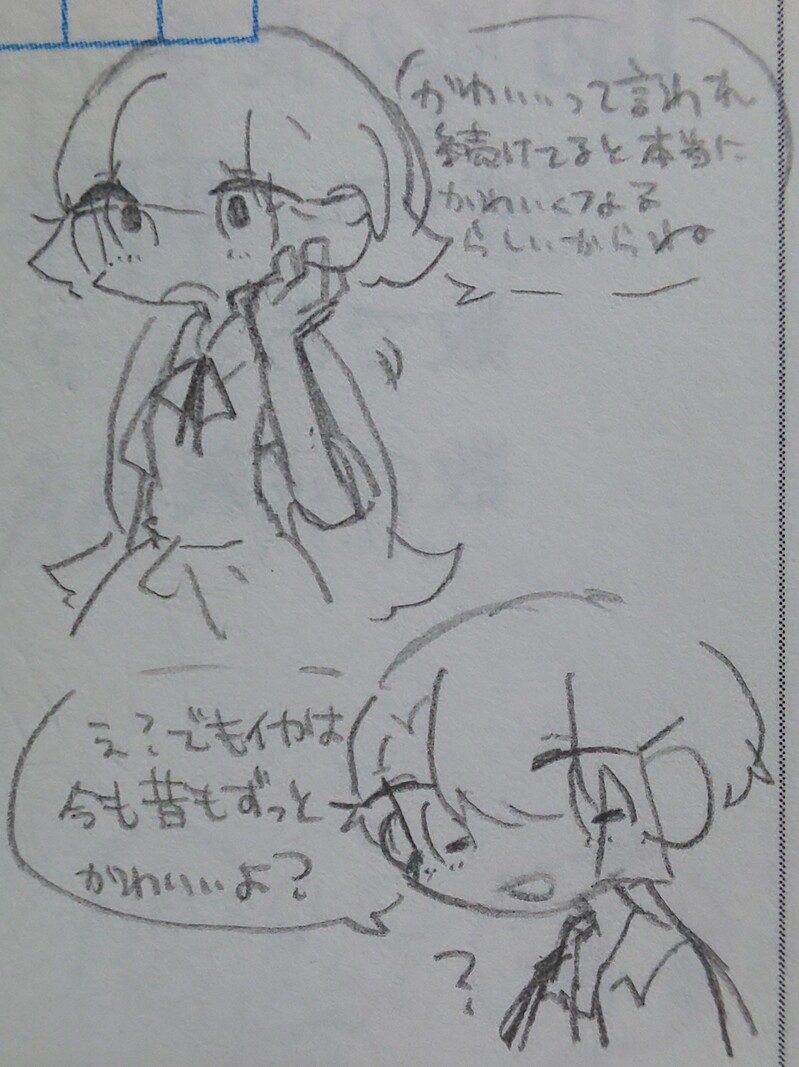 かわいいって言われ
続けてると本当に
かわいくなる
らしいからね
え?でもイカは
今も昔もずっと
かわいいよ?
?